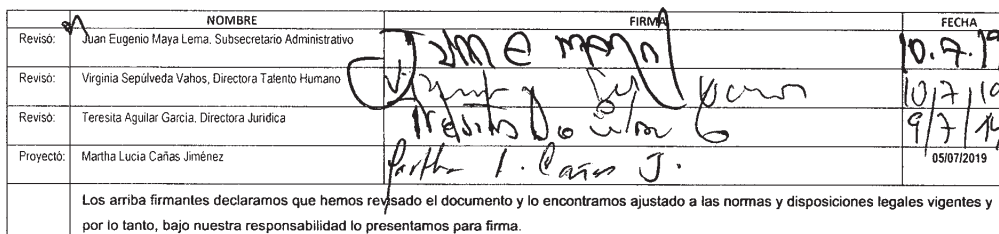 NOMBRE FIRMA FECHA
Revisó: Juan Eugenio Maya Lema. Subsecretario Administrativo 10.7.19
Revisó: Virginia Sepúlveda Vahos, Directora Talento Humano 10/7/19
Revisó: Teresita Aguilar García. Directora Jurídica 9/7/19
Proyectó: Martha Lucia Cañas Jiménez Martha l. Cañas J. 05/07/2019
Los arriba firmantes declaramos que hemos revisado el documento y lo encontramos ajustado a las normas y disposiciones legales vigentes y
por lo tanto, bajo nuestra responsabilidad lo presentamos para firma.